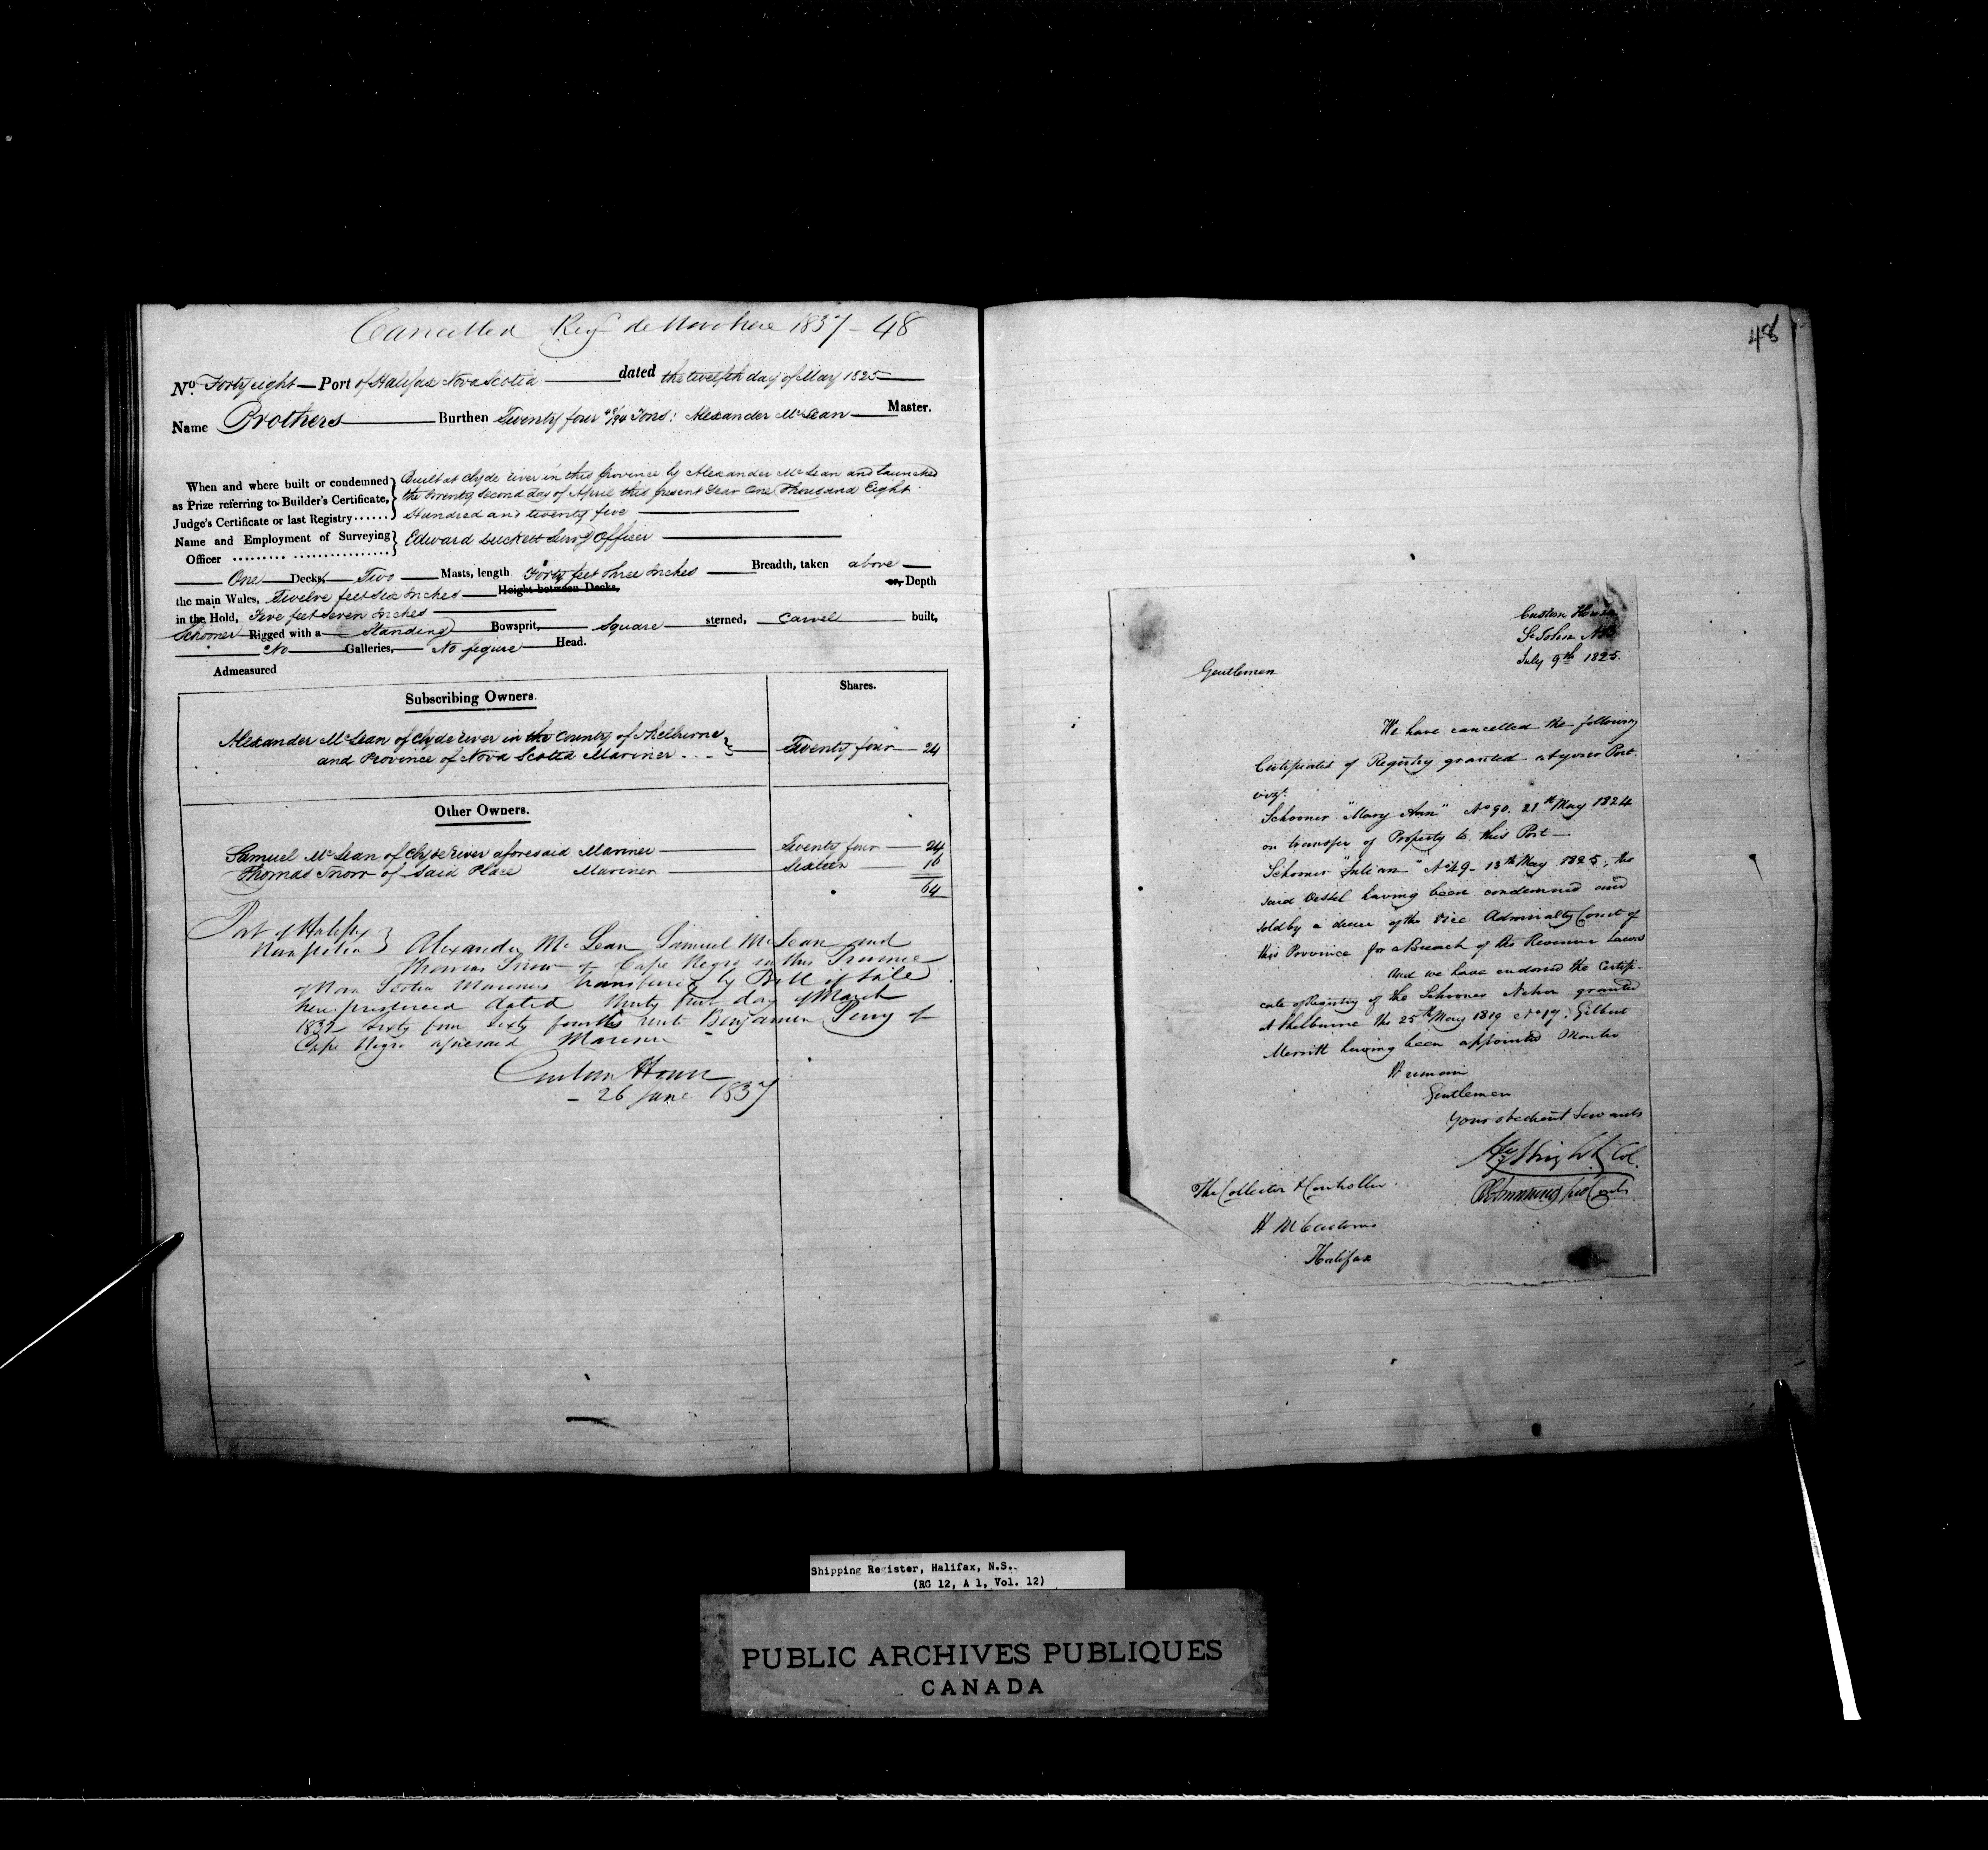 Cancelled Reg de Novo here 1837 - 48
No. Forty eight Port of Halifax Nova Scotia dated the twelfth day of May 1825
Name Brothers Burthen Twenty four 48/94 Tons: Alexander McLean Master.
When and where built or condemned as Prize referring to Builder's Certificate, Judge's Certificate or last Registry......
Built at Clyde river in this Province by Alexander McLean and launched
the twenty second day of April this present Year One Thousand Eight
Hundred and twenty five
Name and Employment of Surveying Officer
Edward Luckett Survg Officer
One Decks, Two Masts, length Forty feet three Inches Breadth, taken above
the main Wales, Twelve feet six Inches Height between Decks, or, Depth
in the Hold, Five feet seven Inches
Schooner Rigged with a Standing Bowsprit, Square sterned, Carvel built,
No Galleries, No figure Head.
Admeasured
Subscribing Owners.
Shares.
Alexander McLean of Clyde river in the County of Shelburne
and Province of Nova Scotia Mariner
Twenty four 24
Other Owners.
Samuel McLean of Clyde river aforesaid Mariner Twenty four 24
Thomas Snow of Said Place Mariner Sixteen 16
64
Port of Halifax
Nova Scotia } Alexander McLean Samuel McLean and
Thomas Snow of Cape Negro in this Province
of Nova Scotia Mariners transferred by Bill of Sale
here produced dated first day of March
1832 Sixty four Sixty fourths unto Benjamin Perry of
Cape Negro aforesaid Mariner
Custom House
26 June 1837
48
Custom House
St John NB
July 9th 1825.
Gentlemen
We have cancelled the following
Certificates of Registry granted at your Port
vizt.
Schooner "Mary Ann" No 90. 21st May 1824
on transfer of Property to this Port
Schooner "Julian" No 49 - 13th May 1825, the
said Vessel having been condemned and
sold by a decree of the Vice Admiralty Court of
this Province for a Breach of the Revenue Laws
And we have endorsed the Certifi-
cate of Registry of the Schooner granted
at Shelburne the 25th May 1819 No 17, Gilbert
Merritt having been appointed Master
We remain
Gentlemen
Your obedient Servants
Wright Col.
The Collector & Controller
H M Customs
Halifax
Shipping Register, Halifax, N.S..
(RG 12, A 1, Vol. 12)
PUBLIC ARCHIVES PUBLIQUES
CANADA